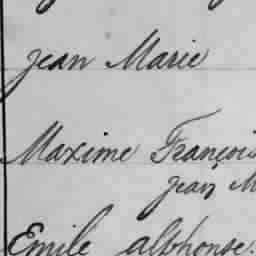 Jean Marie
Maxime François
Jean M
Emile alphonse.